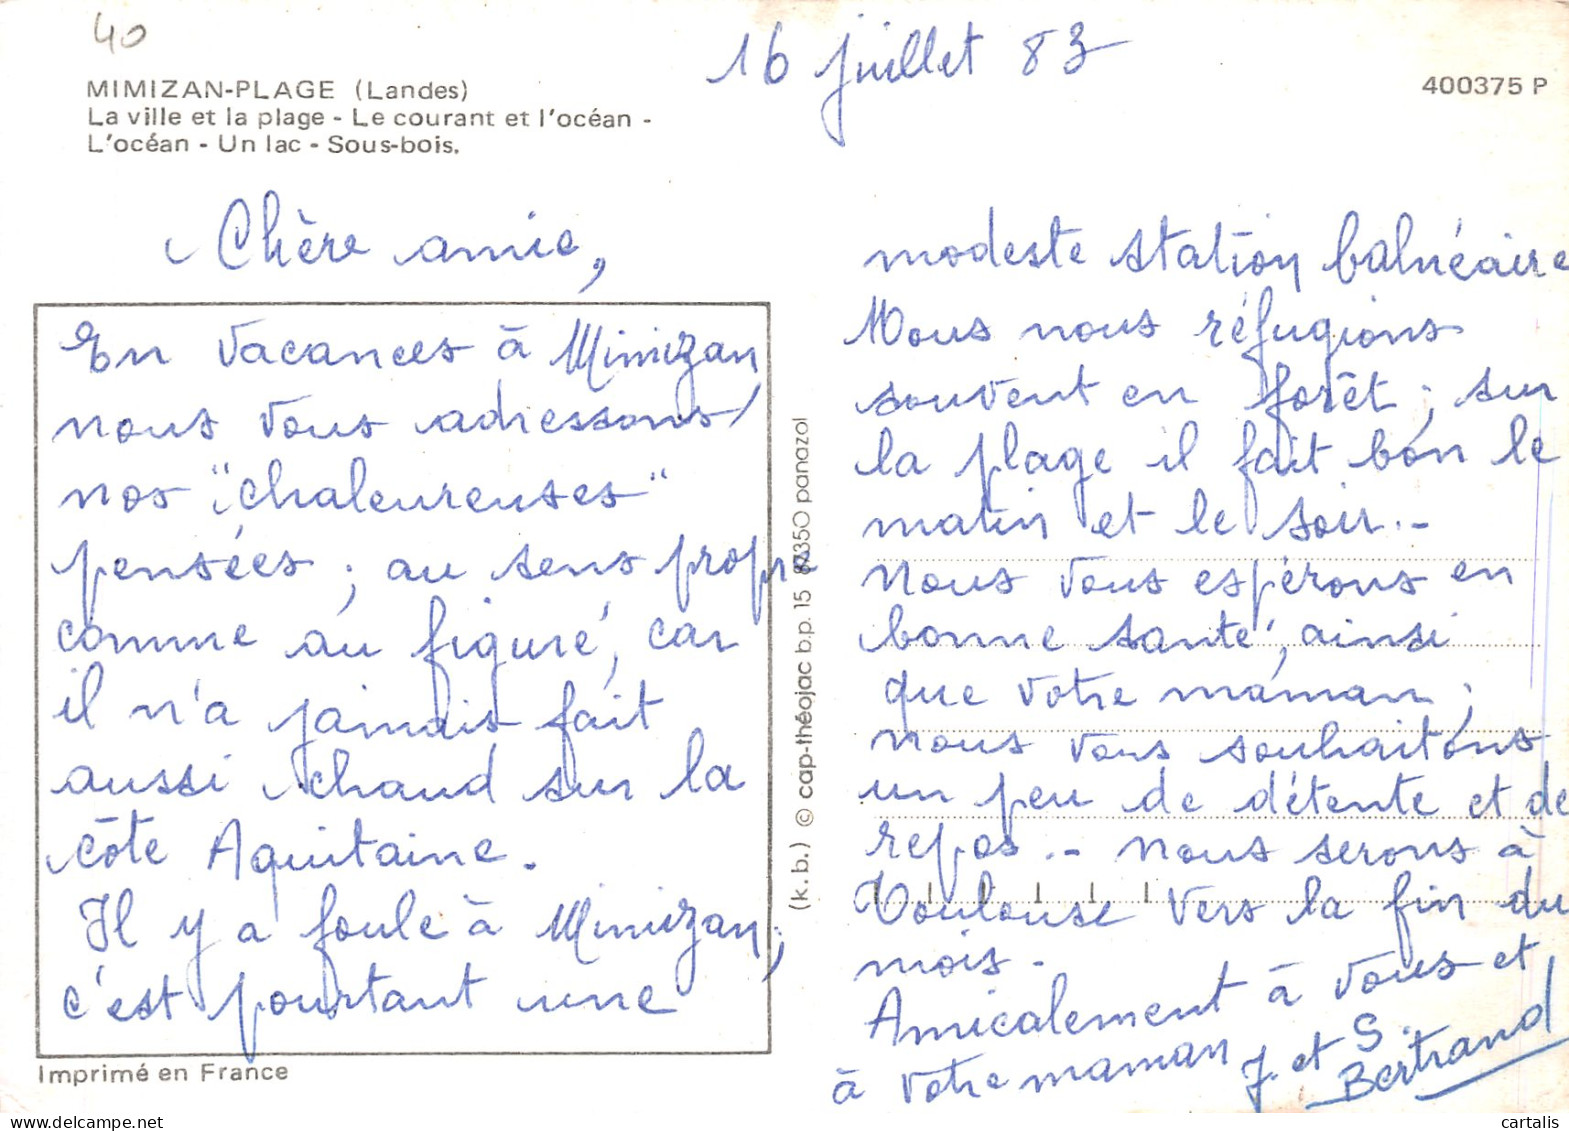 40
16 juillet 83
MIMIZAN-PLAGE (Landes)
La ville et la plage - Le courant et l'océan -
L'océan - Un lac - Sous-bois.
400375 P
Chère amie,
En vacances à Mimizan,
nous vous adressons
nos "chaleureuses"
pensées ; au sens propre
comme au figuré, car
il n'a jamais fait
aussi chaud sur la
côte Aquitaine.
Il y a foule à Mimizan ;
c'est pourtant une
Imprimé en France
(k.b.) © cap-théojac b.p. 15 87350 panazol
modeste station balnéaire
Nous nous réfugions
souvent en forêt ; sur
la plage il fait bon le
matin et le soir.-
Nous vous espérons en
bonne santé, ainsi
que votre maman ;
nous vous souhaitons
un peu de détente et de
repos.- Nous serons à
Toulouse vers la fin du
mois.
Amicalement à vous et
à votre maman
J. et S.
Bertrand
cartalis